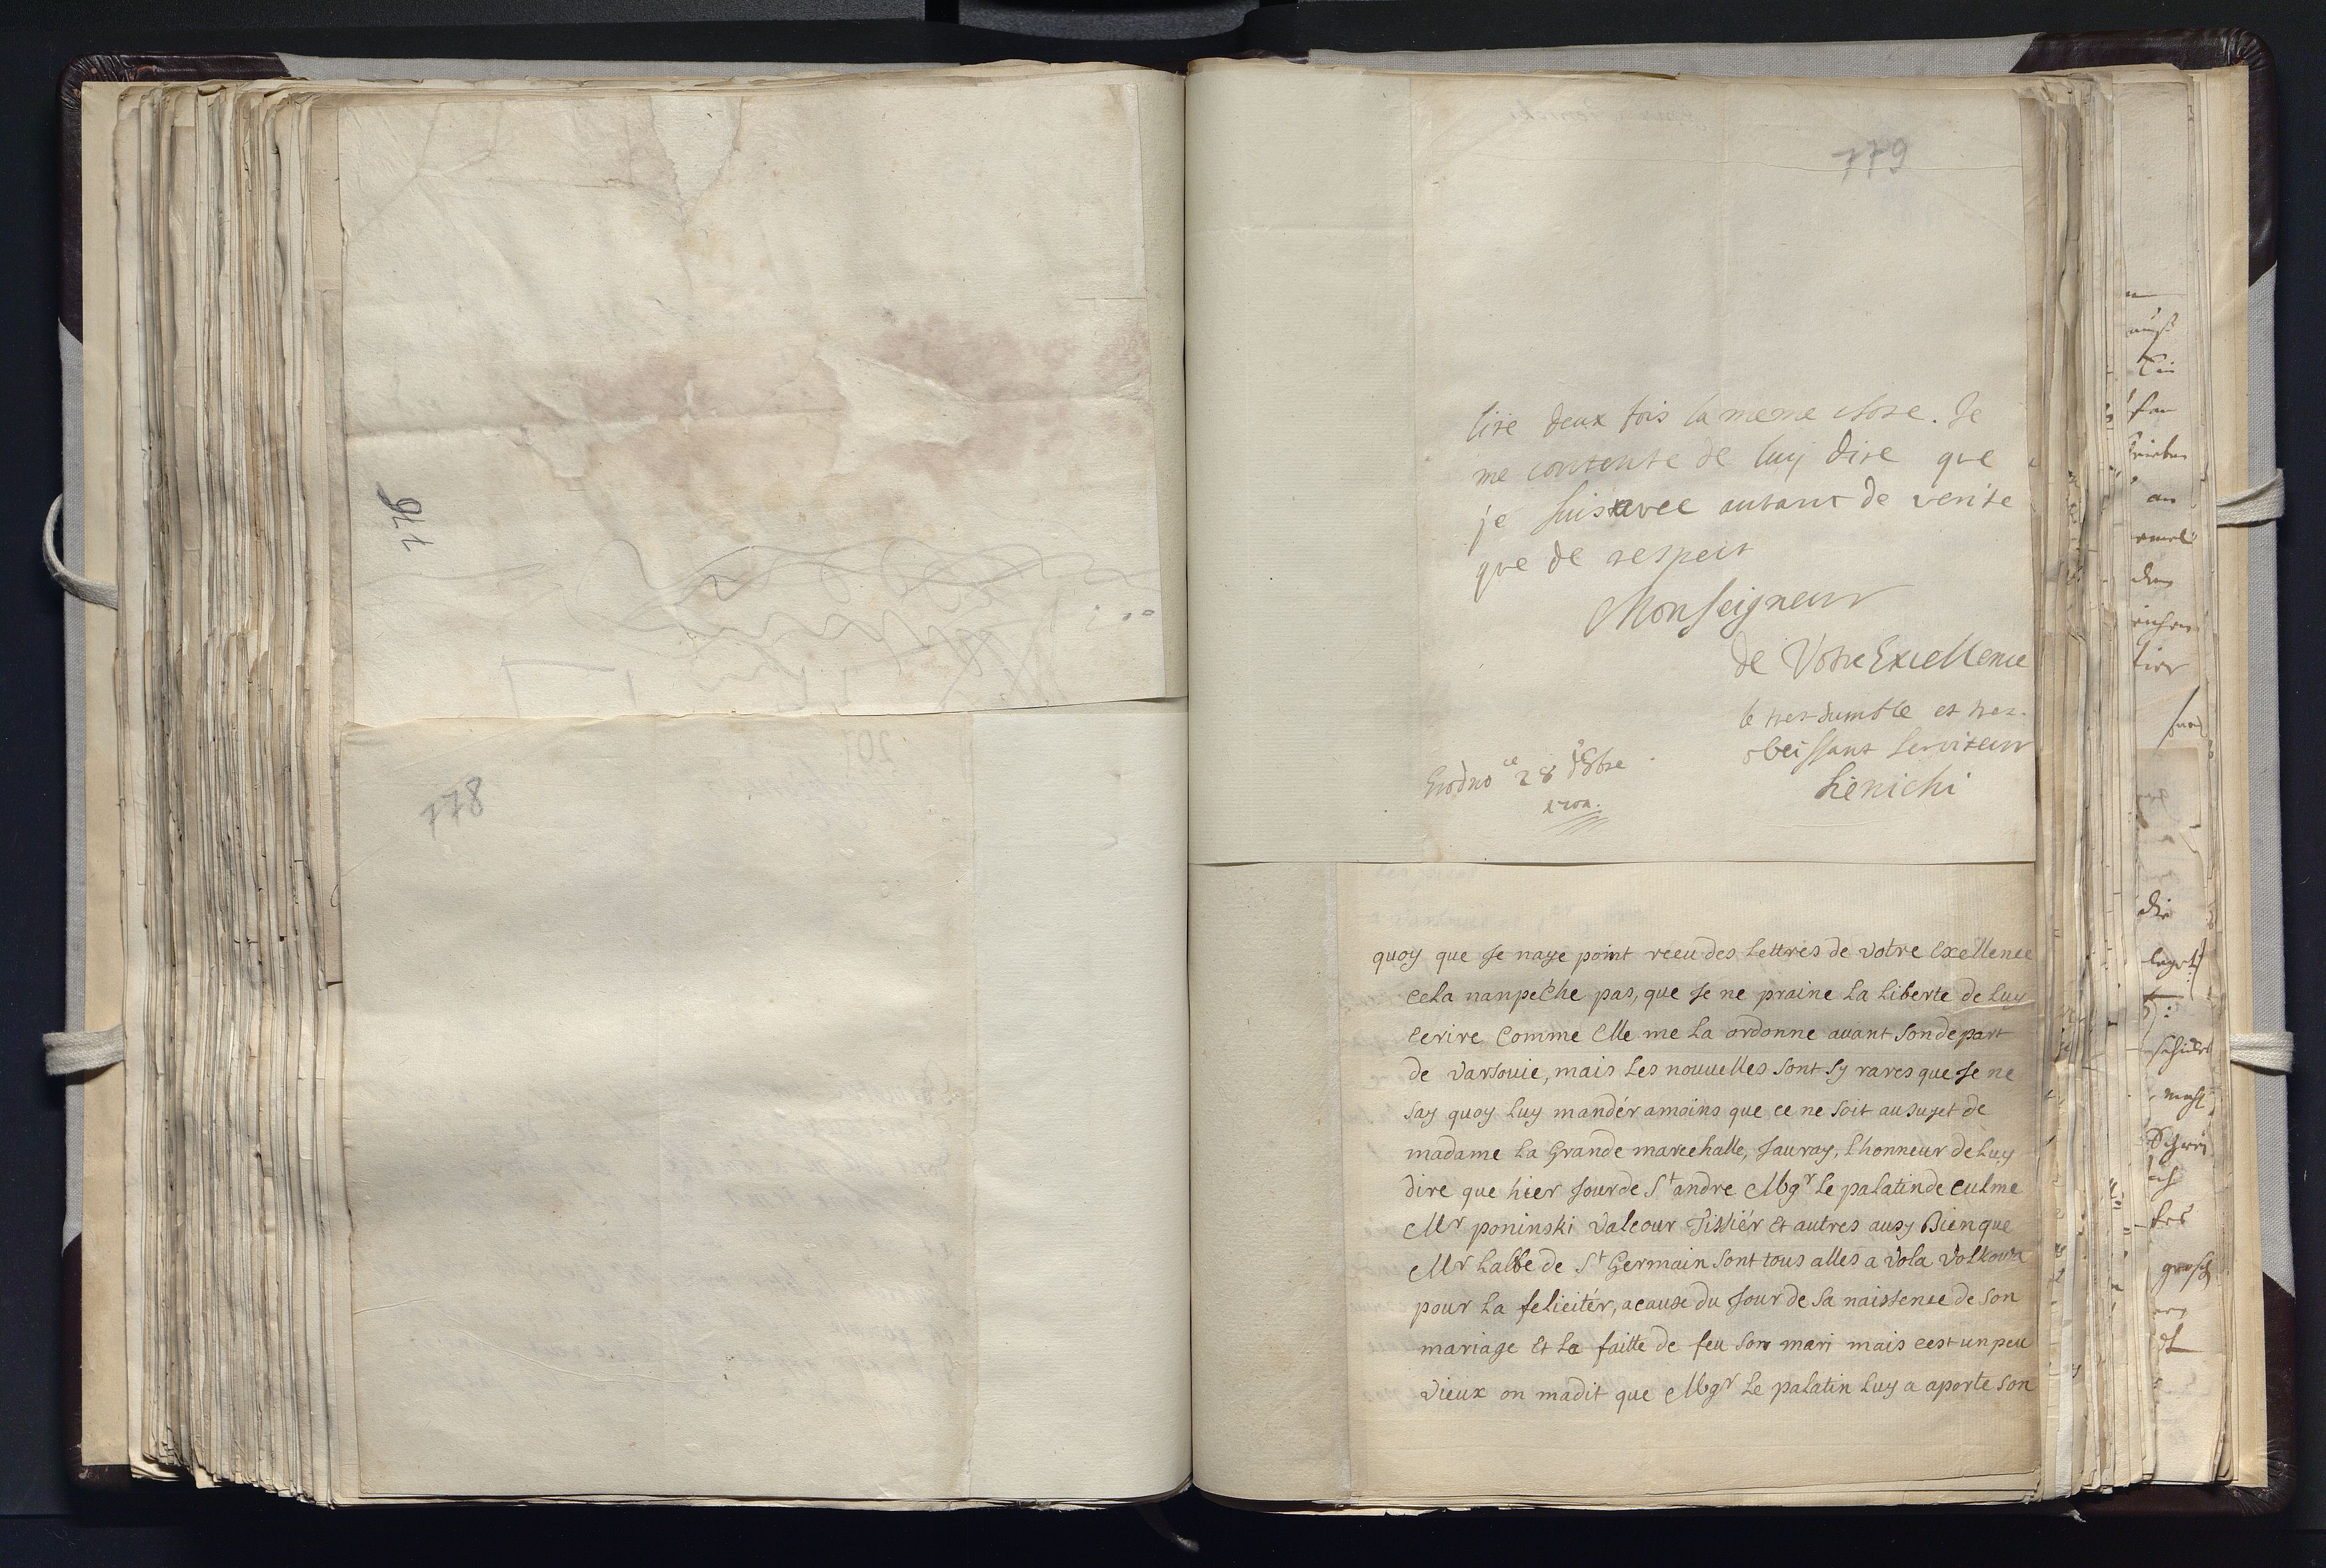 776
778
779
lire deux fois la meme chose. Je
me contente de luy dire que
je suis avec autant de verite
que de respect
Monseigneur
de Votre Excellence
le tres humble et tres
obeissant serviteur
Grodno ce 28
quoy que Je naye point receu des Lettres de votre Exellence
cela nanpeche pas, que Je ne praine La Liberte de Luy
ecrire Comme Elle me La ordonne auant Son depart
de Varsouie, mais Les nouuelles Sont Sy rares que Je ne
Say quoy Luy mandér amoins que ce ne Soit au Sujet de
madame La Grande marcehalle, Jauray, Lhonneur de Luy
dire que hier Jour de St andre Mgr Le palatin de Culme
Mr poninski Valcour Tissiér Et autres ausy Bien que
Mr Labbe de St Germain Sont tous alles a Vola
pour La felicitér, acause du Jour de Sa naissence de Son
mariage Et La faitte de feu Son mari mais cest un peu
Vieux on madit que Mgr Le palatin Luy a aporte Son